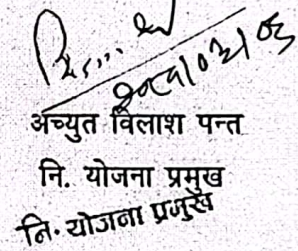 अच्युत विलाश पन्त
नि. योजना प्रमुख
नि. योजना प्रमुख